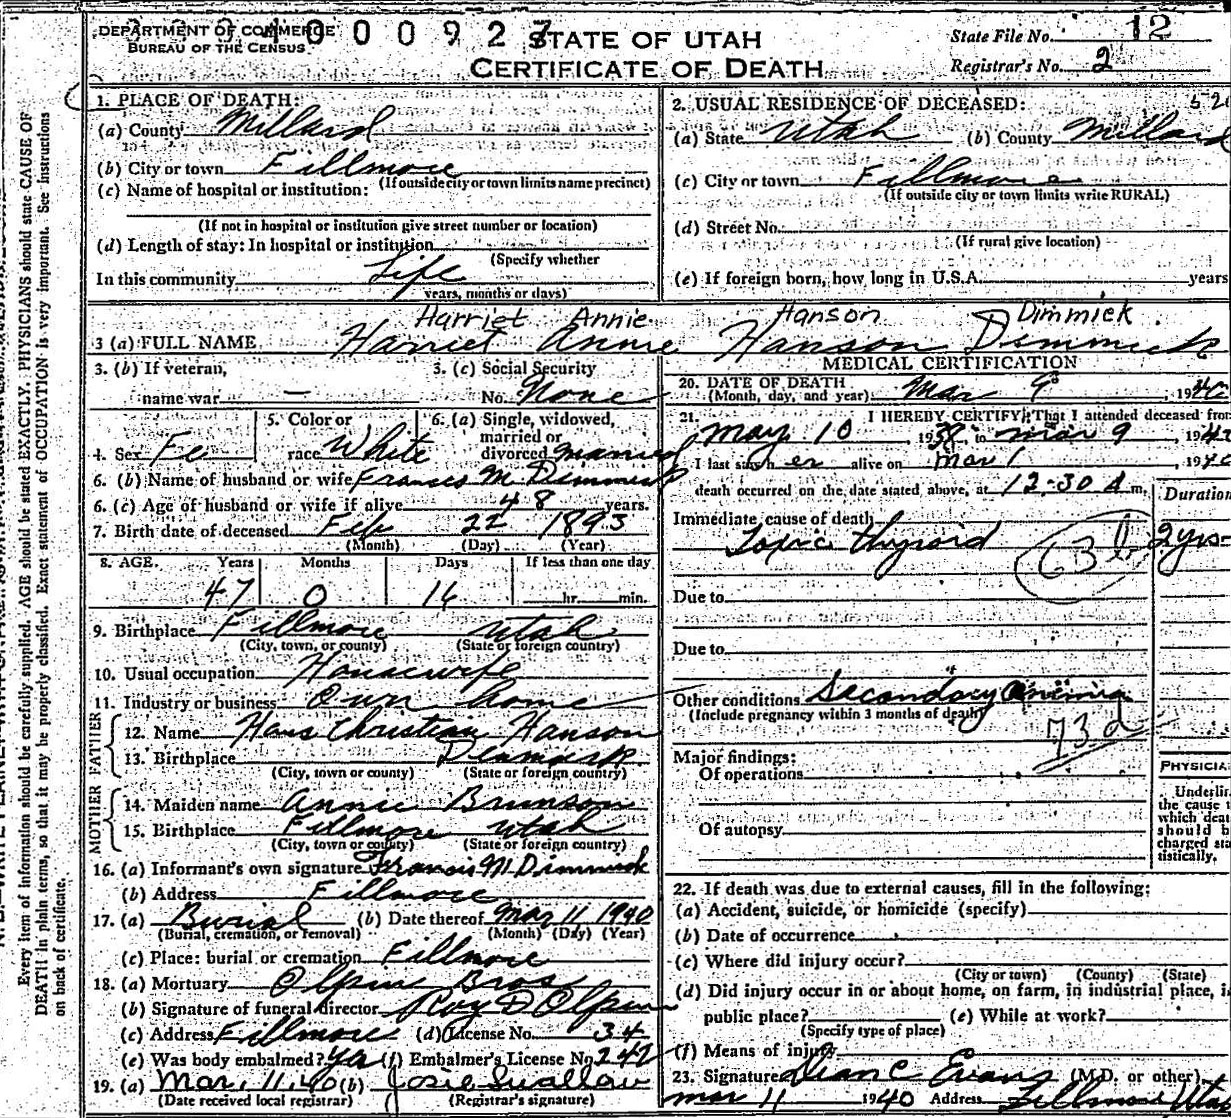 DEPARTMENT OF COMMERCE
BUREAU OF THE CENSUS
STATE OF UTAH
CERTIFICATE OF DEATH
State File No. 12
Registrar's No. 2
1. PLACE OF DEATH:
(a) County Millard
(b) City or town Fillmore
(If outside city or town limits name precinct)
(c) Name of hospital or institution:
(If not in hospital or institution give street number or location)
(d) Length of stay: In hospital or institution
(Specify whether
In this community Life
years, months or days)
2. USUAL RESIDENCE OF DECEASED:
(a) State Utah (b) County Millard
(c) City or town Fillmore
(If outside city or town limits write RURAL)
(d) Street No.
(If rural give location)
(e) If foreign born, how long in U.S.A. years
Harriet Annie Hanson Dimmick
3 (a) FULL NAME Harriet Annie Hanson Dimmick
3. (b) If veteran, name war —
3. (c) Social Security No. None
4. Sex Fe
5. Color or race White
6. (a) Single, widowed, married or divorced Married
6. (b) Name of husband or wife Frances M Dimmick
6. (c) Age of husband or wife if alive 48 years.
7. Birth date of deceased Feb 22 1893
(Month) (Day) (Year)
8. AGE. Years Months Days If less than one day
47 0 16 hr. min.
9. Birthplace Fillmore Utah
(City, town, or county) (State or foreign country)
10. Usual occupation Housewife
11. Industry or business Own home
FATHER
12. Name Hans Christian Hanson
13. Birthplace Denmark
(City, town or county) (State or foreign country)
MOTHER
14. Maiden name Annie Brunson
15. Birthplace Fillmore Utah
(City, town or county) (State or foreign country)
16. (a) Informant's own signature Francis M Dimmick
(b) Address Fillmore
17. (a) Burial (b) Date thereof Mar 11 1940
(Burial, cremation, or removal) (Month) (Day) (Year)
(c) Place: burial or cremation Fillmore
18. (a) Mortuary Olpin Bros
(b) Signature of funeral director Roy D Olpin
(c) Address Fillmore (d) License No. 34
(e) Was body embalmed? yes (f) Embalmer's License No. 247
19. (a) Mar. 11, 40 (b) Josie Swallow
(Date received local registrar) (Registrar's signature)
MEDICAL CERTIFICATION
20. DATE OF DEATH
(Month, day, and year) Mar 9, 1940
21. I HEREBY CERTIFY, That I attended deceased from
May 10, 1938, to Mar 9, 1940
I last saw h er alive on Mar 1, 1940
death occurred on the date stated above, at 12:30 A m.
Duration
Immediate cause of death
Toxic thyroid 63 b 2 yrs
Due to
Due to
Other conditions Secondary Anemia
(Include pregnancy within 3 months of death)
73 d
Major findings:
Of operations
Of autopsy
PHYSICIA
Underlin
the cause t
which deat
should b
charged sta
tistically.
22. If death was due to external causes, fill in the following:
(a) Accident, suicide, or homicide (specify)
(b) Date of occurrence
(c) Where did injury occur?
(City or town) (County) (State)
(d) Did injury occur in or about home, on farm, in industrial place, i
public place? (e) While at work?
(Specify type of place)
(f) Means of injury
23. Signature Dean C Evans (M.D. or other)
Mar 11 1940 Address Fillmore Utah
Every item of information should be carefully supplied. AGE should be stated EXACTLY. PHYSICIANS should state CAUSE OF
DEATH in plain terms, so that it may be properly classified. Exact statement of OCCUPATION is very important. See instructions
on back of certificate.